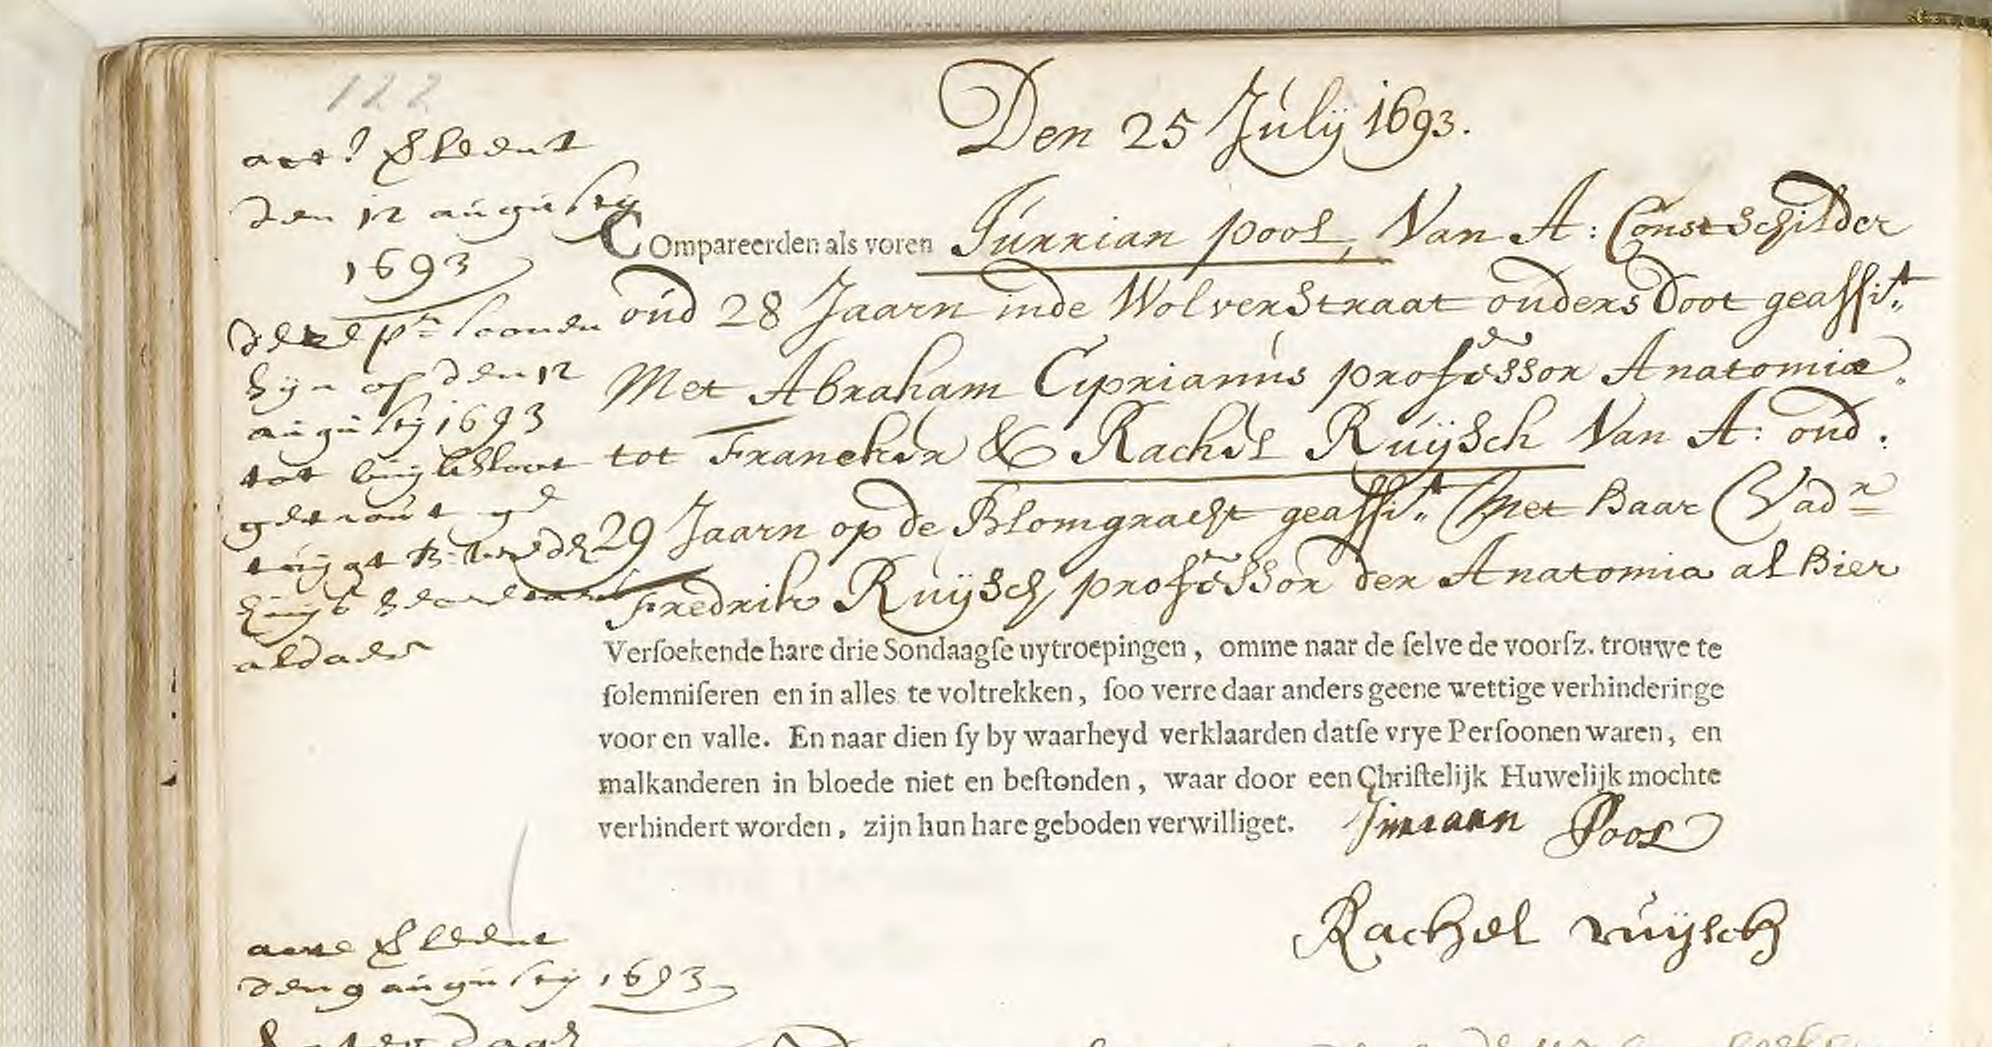 122
Den 25 Julij 1693.
act? Sleent
den 12 augustij
1693
dese psoonen
sijn op den 12
augustij 1693
tot buijksloot
getrout
aldaer
Compareerden als voren Jurrian pool, Van A: Constschilder
oud 28 Jaarn inde Wolverstraat ouders doot geassist
Met Abraham Ciprianus professor Anatomia
tot Franeker & Rachel Ruijsch Van A: oud.
29 Jaarn op de Blomgracht geassist Met haar Vadr
Fredrik Ruijsch professor der Anatomia al hier
Versoekende hare drie Sondaagſe uytroepingen, omme naar de ſelve de voorſz. trouwe te
ſolemniſeren en in alles te voltrekken, ſoo verre daar anders geene wettige verhinderinge
voor en valle. En naar dien ſy by waarheyd verklaarden datſe vrye Perſoonen waren, en
malkanderen in bloede niet en beſtonden, waar door een Chriſtelijk Huwelijk mochte
verhindert worden, zijn hun hare geboden verwilliget.
Jurriaan Pool
Rachel ruijsch
acte Sleent
den 9 augustij 1693